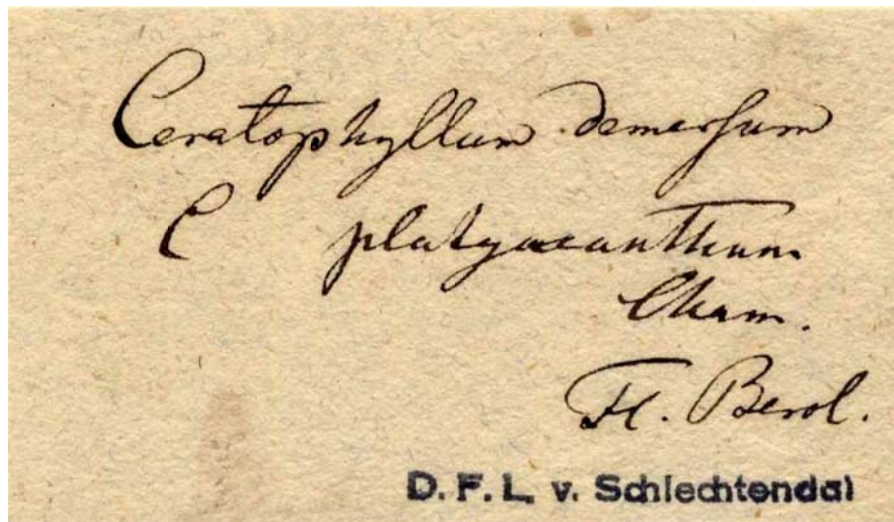 Ceratophyllum demersum
C platyacanthum
Cham.
Fl. Berol.
D. F. L. v. Schlechtendal